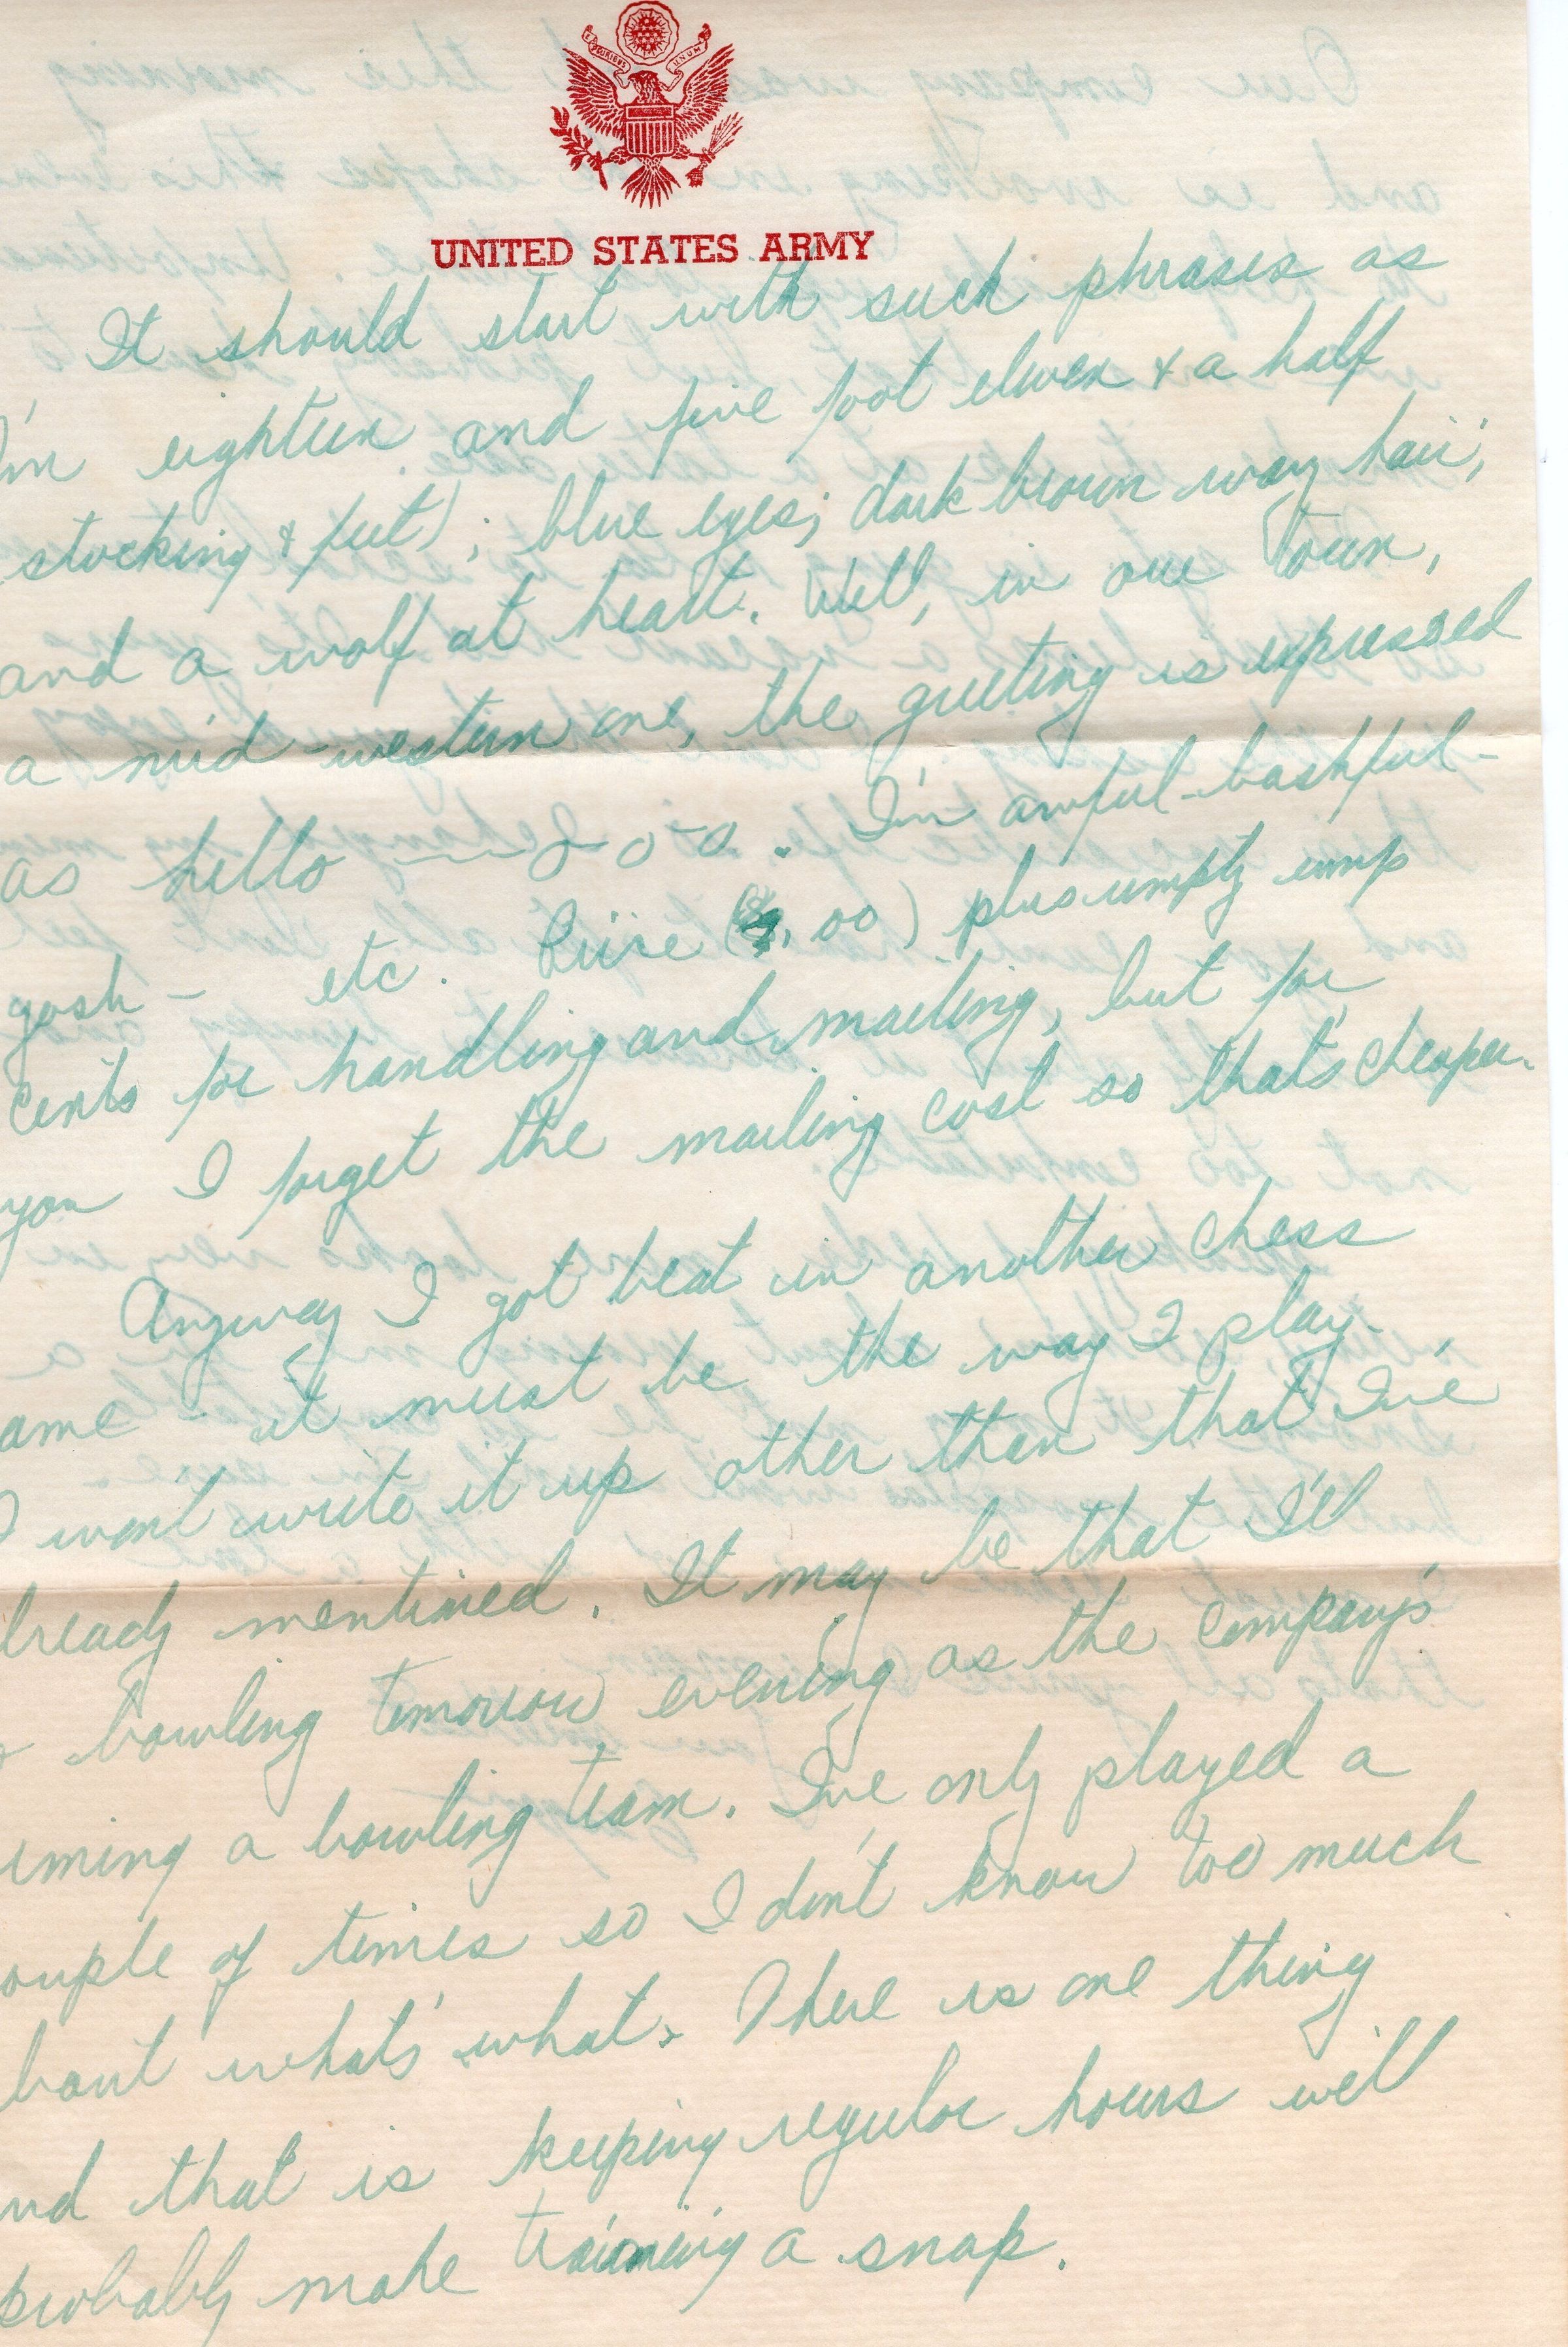 E PLURIBUS UNUM
UNITED STATES ARMY
It should start with such phrases as
I'm eighteen and five foot eleven & a half
stocking & feet); blue eyes; dark brown wavy hair;
and a wolf at heart. Well, in our town,
a mid-western one, the greeting is expressed
as hello ~~o-o-o. I'm awful-bashful-
gosh - etc. Price ( .00) plus umpty ump
cents for handling and mailing, but for
you I forget the mailing cost so that's cheaper.
Anyway I got beat in another chess
ame - it must be the way I play.
I won't write it up other than that I've
lready mentioned. It may be that I'll
bowling tomorrow evening as the company's
rming a bowling team. I've only played a
ouple of times so I don't know too much
bout what's what. There is one thing
nd that is keeping regular hours will
probably make training a snap.